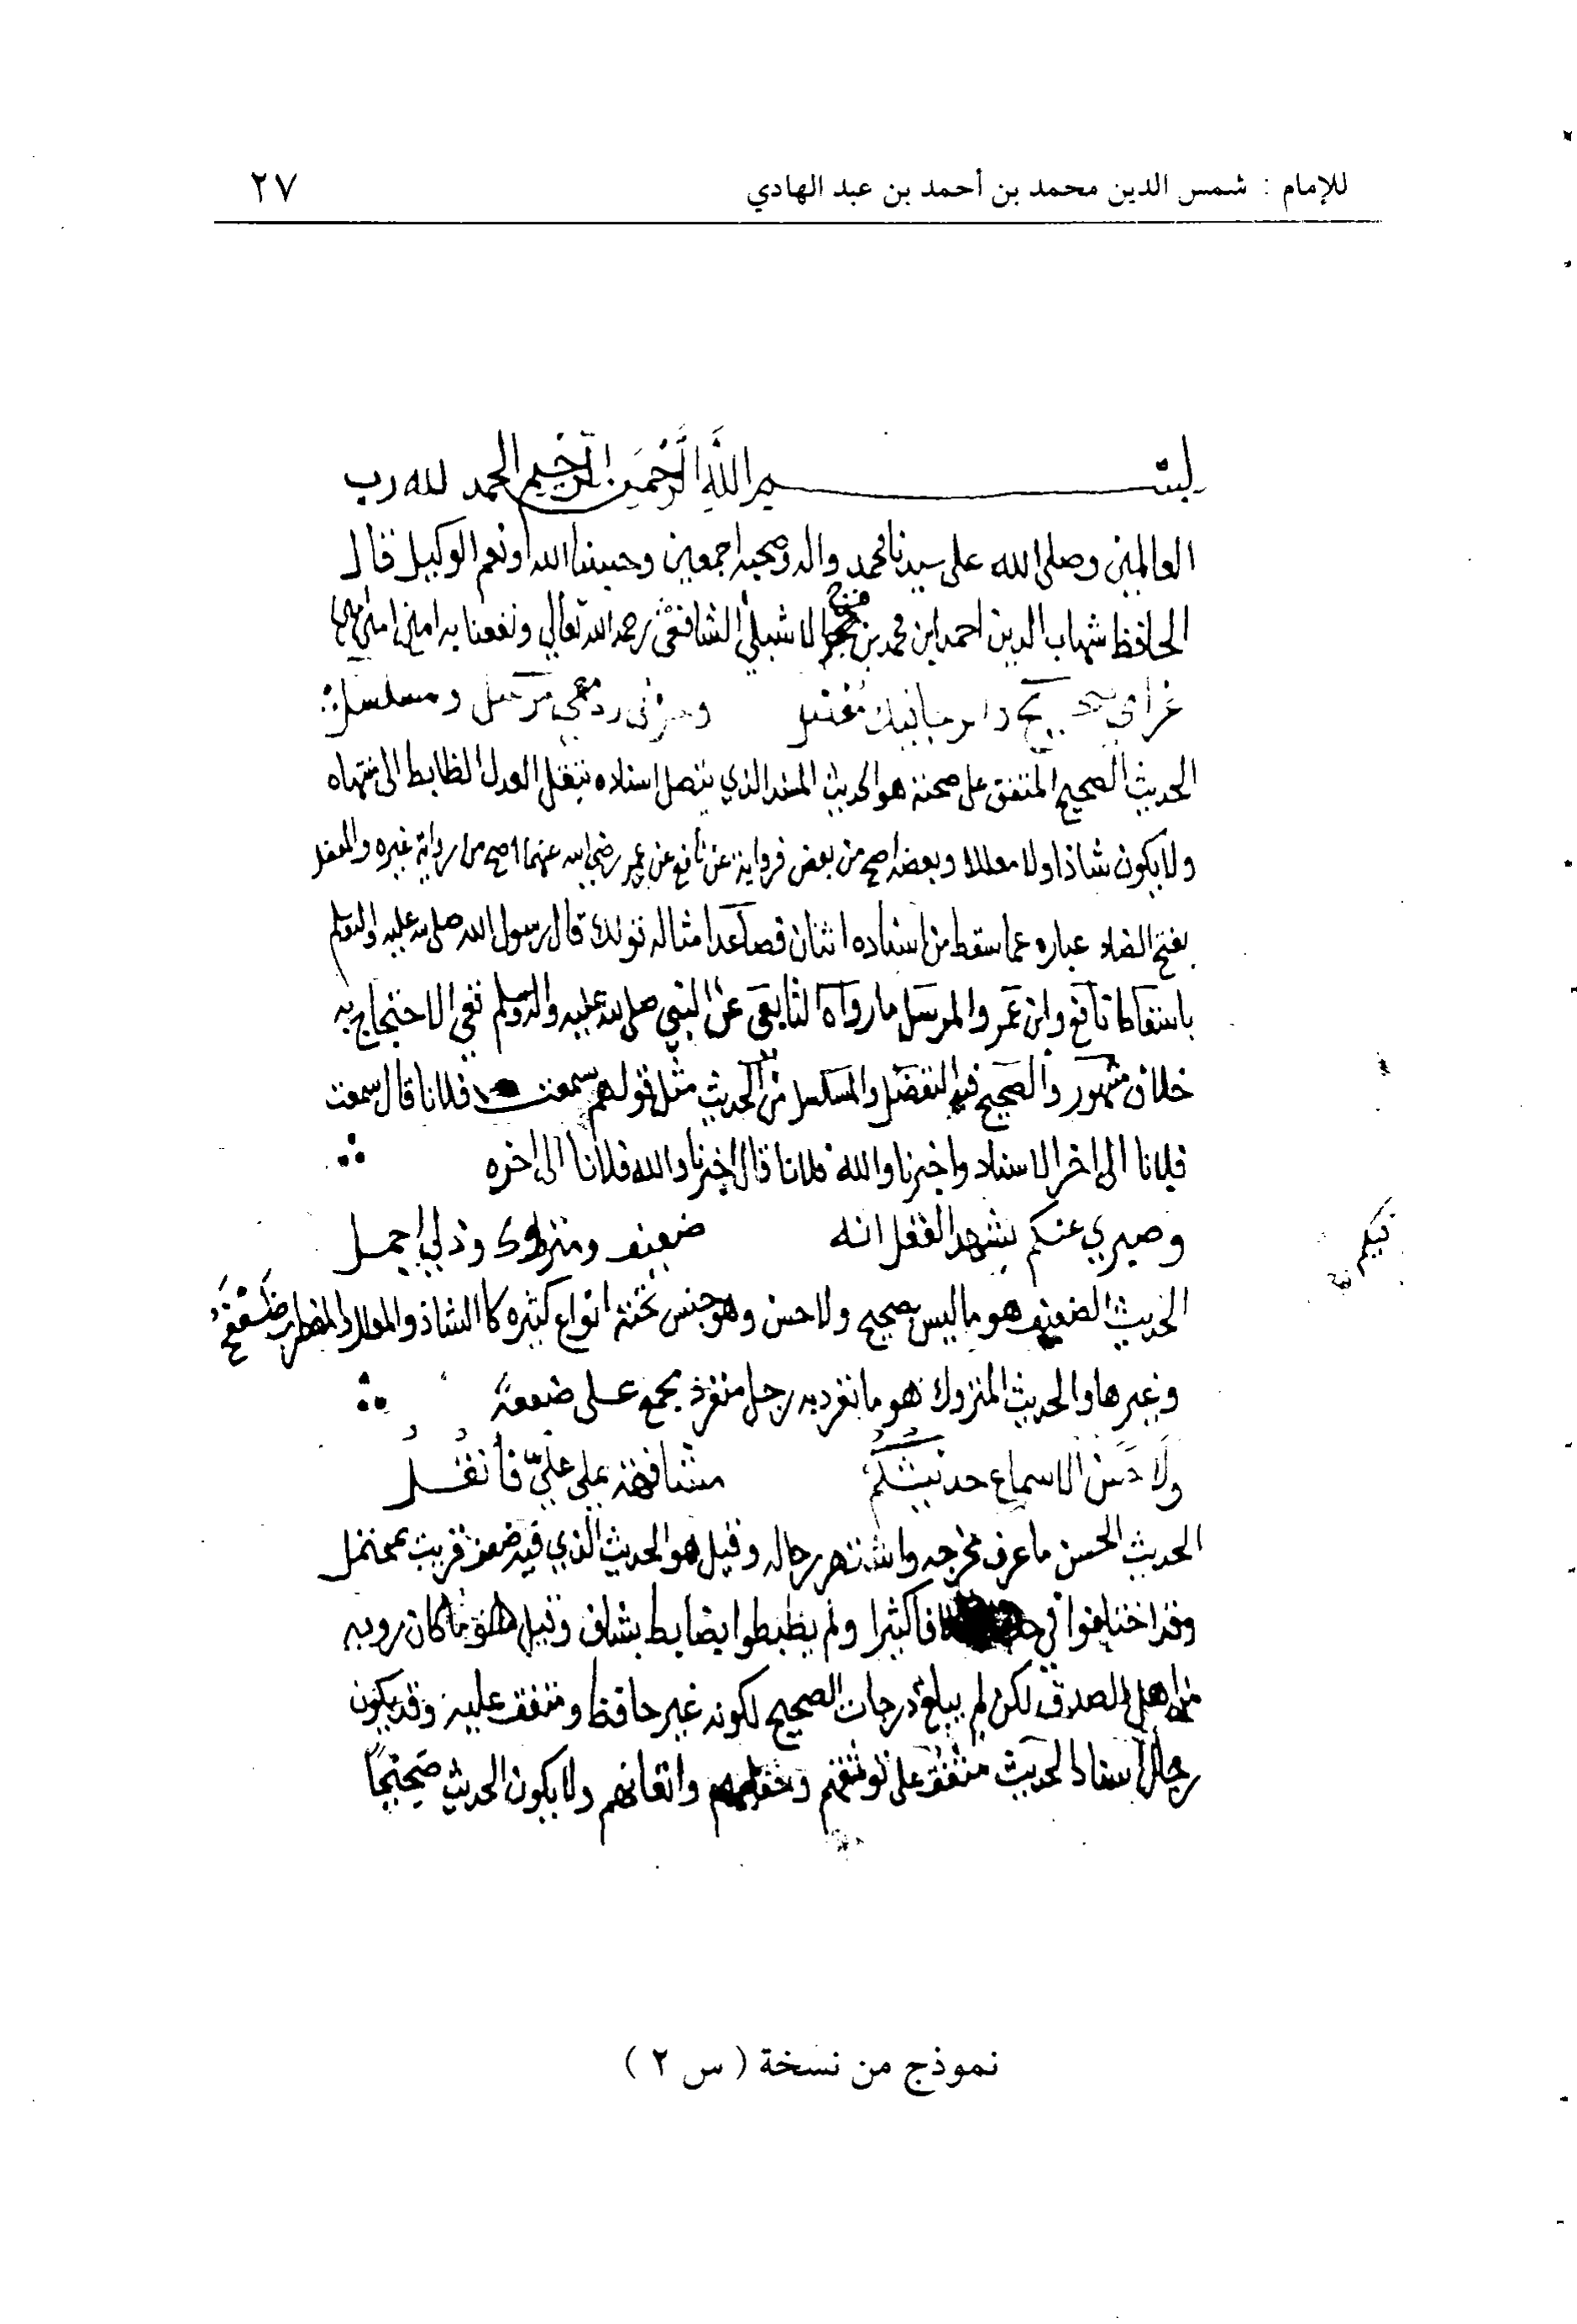 للإمام : شمس الدين محمد بن أحمد بن عبد الهادي ٢٧
بسم الله الرحمن الرحيم الحمد لله رب
العالمين وصلى الله على سيدنا محمد واله وصحبه اجمعين وحسبنا الله ونعم الوكيل قال
الحافظ شهاب الدين احمد ابن محمد بن فرح الاشبيلي الشافعي رحمه الله تعالى ونفعنا به امين امين
غرامي صحيح والرجا فيك معضل وحزني ودمعي مرسل ومسلسل
الحديث الصحيح المتفق على صحته هو الحديث المسند الذي يتصل اسناده بنقل العدل الظابط الى منتهاه
ولا يكون شاذا ولا معللا وبعضه اصح من بعض فرواية عن نافع عن عمر رضي الله عنهما اصح من رواية غيره والمعضل
بفتح الضاد عباره عما سقط من اسناده اثنان فصاعدا مثاله قولك قال رسول الله صلى الله عليه واله وسلم
باسقاط نافع وابن عمر والمرسل ما رواه التابعي عن النبي صلى الله عليه واله وسلم ففي الاحتجاج به
خلاف مشهور والصحيح فيه التفضيل والمسلسل من الحديث مثل قولهم سمعت فلانا قال سمعت
فلانا الى اخر الاسناد واخبرنا والله فلانا قال اخبرنا والله فلانا الى اخره
وصبري عنكم يشهد العقل انه ضعيف ومتروك وذلي اجمل
الحديث الضعيف هو ما ليس بصحيح ولا حسن وهو جنس تحته انواع كثيره كالشاذ والمعلل والمضطرب
وغيرها والحديث المتروك هو ما انفرد به رجل منفرد يجمع على ضعفه
ولا حسن الا سماع حديثكم مشافهة يملى علي فأنقل
الحديث الحسن ما عرف مخرجه واشتهر رجاله وقيل هو الحديث الذي فيه ضعف قريب محتمل
وقد اختلفوا في كثيرا ولم يظبطوا بضابط بشاف وقيل هو ما كان رويه
من اهل الصدق لكن لم يبلغ درجات الصحيح لكونه غير حافظ ومتفق عليه وقد يكون
رجال اسناد الحديث متفق على توثيقهم وحفظهم واتقانهم ولا يكون الحديث صحيحا
نموذج من نسخة ( س ٢ )